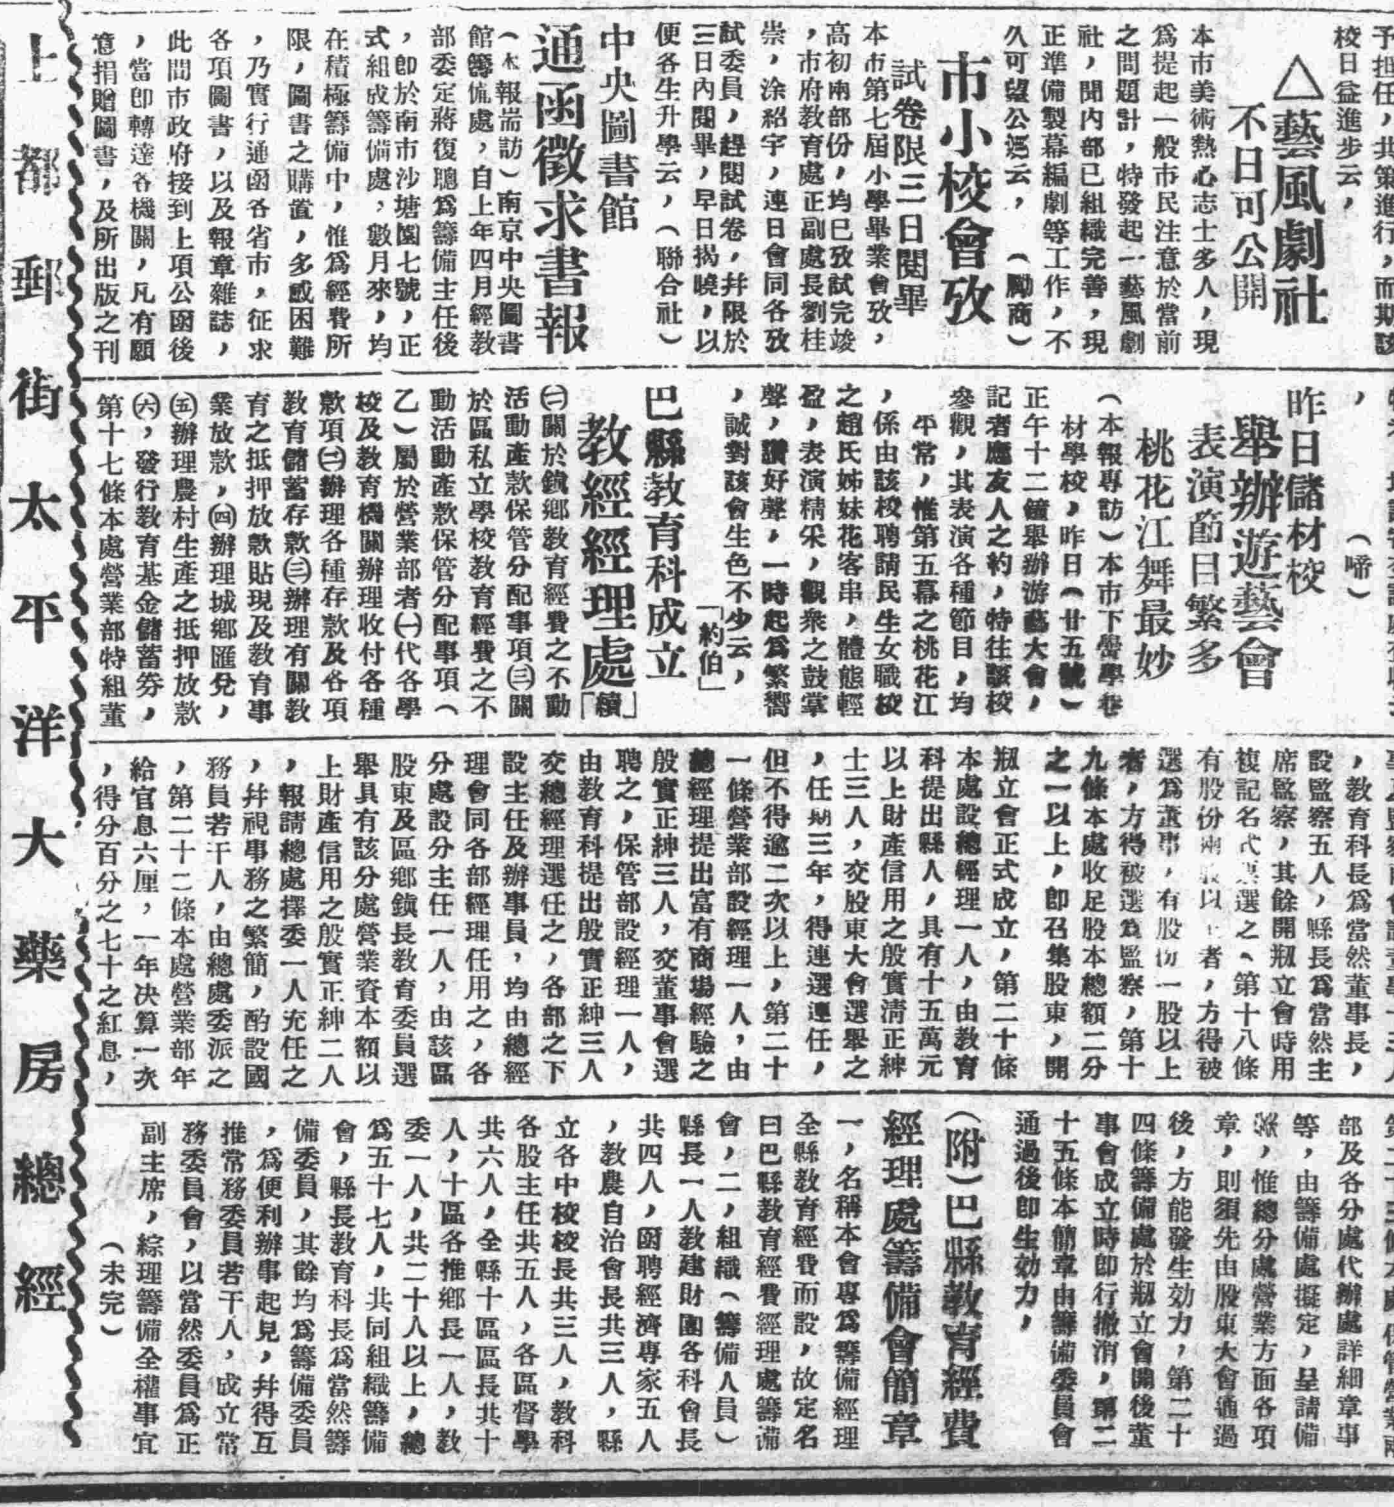 予担任，共策進行，而期該
校日益進步云，
△藝風劇社
不日可公開
本市美術熱心志士多人，現
為提起一般市民注意於當前
之問題計，特發起一藝風劇
社，聞內部已組織完善，現
正準備製幕編劇等工作，不
久可望公演云，（勵商）
市小校會攷
試卷限三日閱畢
本市第七屆小學畢業會攷，
高初兩部份，均已攷試完竣
，市府教育處正副處長劉桂
崇，涂紹宇，連日會同各攷
試委員，趕閱試卷，幷限於
三日內閱畢，早日揭曉，以
便各生升學云，（聯合社）
中央圖書館
通函徵求書報
（本報耑訪）南京中央圖書
館籌備處，自上年四月經教
部委定蔣復聰爲籌備主任後
，卽於南市沙塘園七號，正
式組成籌備處，數月來，均
在積極籌備中，惟爲經費所
限，圖書之購置，多感困難
，乃實行通函各省市，征求
各項圖書，以及報章雜誌，
此間市政府接到上項公函後
，當卽轉達各機關，凡有願
意捐贈圖書，及所出版之刊
（啼）
昨日儲材校
舉辦遊藝會
表演節目繁多
桃花江舞最妙
（本報專訪）本市下黌學巷
材學校，昨日（廿五號）
正午十二鐘舉辦游藝大會，
記者應友人之約，特往該校
參觀，其表演各種節目，均
平常，惟第五幕之桃花江
，係由該校聘請民生女職校
之趙氏姊妹花客串，體態輕
盈，表演精采，觀衆之鼓掌
聲，讚好聲，一時起爲繁嚮
，誠對該會生色不少云，
「約伯」
巴縣教育科成立
教經經理處「續」
㈡關於鎮鄉教育經費之不動
活動產款保管分配事項㈢關
於區私立學校教育經費之不
動活動產款保管分配事項（
乙）屬於營業部者㈠代各學
校及教育機關辦理收付各種
款項㈡辦理各種存款及各項
教育儲蓄存款㈢辦理有關教
育之抵押放款貼現及教育事
業放款，㈣辦理城鄉匯兌，
㈤辦理農村生產之抵押放款
㈥，發行教育基金儲蓄劵，
第十七條本處營業部特組董
，教育科長爲當然董事長，
設監察五人，縣長爲當然主
席監察，其餘開瓶立會時用
複記名式票選之，第十八條
有股份兩股以上者，方得被
選爲董事，有股份一股以上
者，方得被選爲監察，第十
九條本處收足股本總額二分
之一以上，卽召集股東，開
瓶立會正式成立，第二十條
本處設總經理一人，由教育
科提出縣人，具有十五萬元
以上財產信用之殷實淸正紳
士三人，交股東大會選舉之
，任期三年，得連選連任，
但不得逾二次以上，第二十
一條營業部設經理一人，由
總經理提出富有商場經驗之
殷實正紳三人，交董事會選
聘之，保管部設經理一人，
由教育科提出殷實正紳三人
交總經理選任之，各部之下
設主任及辦事員，均由總經
理會同各部經理任用之，各
分處設分主任一人，由該區
股東及區鄉鎮長教育委員選
舉具有該分處營業資本額以
上財產信用之殷實正紳二人
，報請總處擇委一人充任之
，幷視事務之繁簡，酌設國
務員若干人，由總處委派之
，第二十二條本處營業部年
給官息六厘，一年決算一次
，得分百分之七十之紅息，
部及各分處代辦處詳細章事
等，由籌備處擬定，呈請備
，惟總分處營業方面各項
章，則須先由股東大會通過
後，方能發生効力，第二十
四條籌備處於瓶立會開後董
事會成立時卽行撤消，第二
十五條本簡章由籌備委員會
通過後卽生効力，
（附）巴縣教育經費
經理處籌備會簡章
一，名稱本會專爲籌備經理
全縣教育經費而設，故定名
曰巴縣教育經費經理處籌備
會，二，組織（籌備人員）
縣長一人教建財團各科會長
共四人，函聘經濟專家五人
，教農自治會長共三人，縣
立各中校校長共三人，教科
各股主任共五人，各區督學
共六人，全縣十區區長共十
人，十區各推鄉長一人，教
委一人，共二十人以上，總
爲五十七人，共同組織籌備
會，縣長教育科長爲當然籌
備委員，其餘均爲籌備委員
，爲便利辦事起見，幷得互
推常務委員若干人，成立常
務委員會，以當然委員爲正
副主席，綜理籌備全權事宜
（未完）
上都郵街太平洋大藥房總經